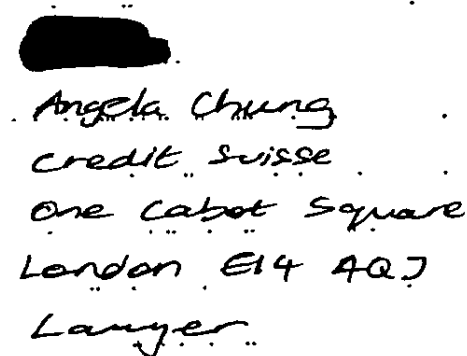 Angela Chung
Credit Suisse
One Cabot Square
London E14 4QJ
Lawyer